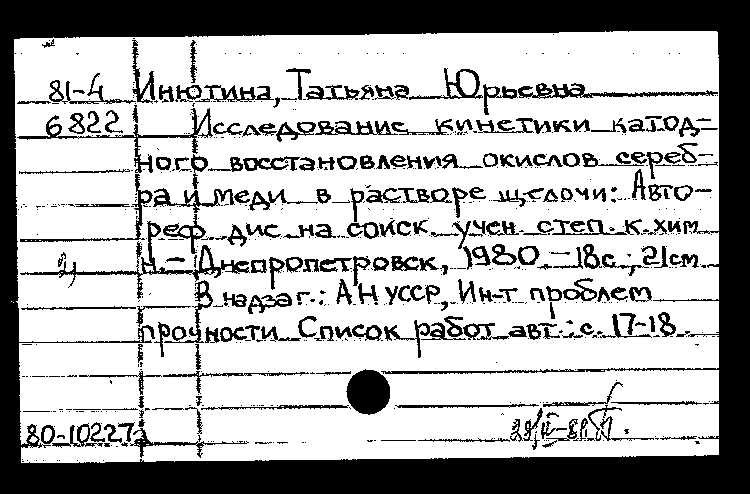 81-4 Инютина, Татьяна Юрьевна
6822 Исследование кинетики катод-
ного восстановления окислов сереб-
ра и меди в растворе щелочи: Авто-
реф. дис. на соиск. учен. степ. к. хим
н. - Днепропетровск, 1980. - 18с.; 21см
В надзаг.: АН УССР, Ин-т проблем
прочности. Список работ авт.: с. 17-18.
80-10227а